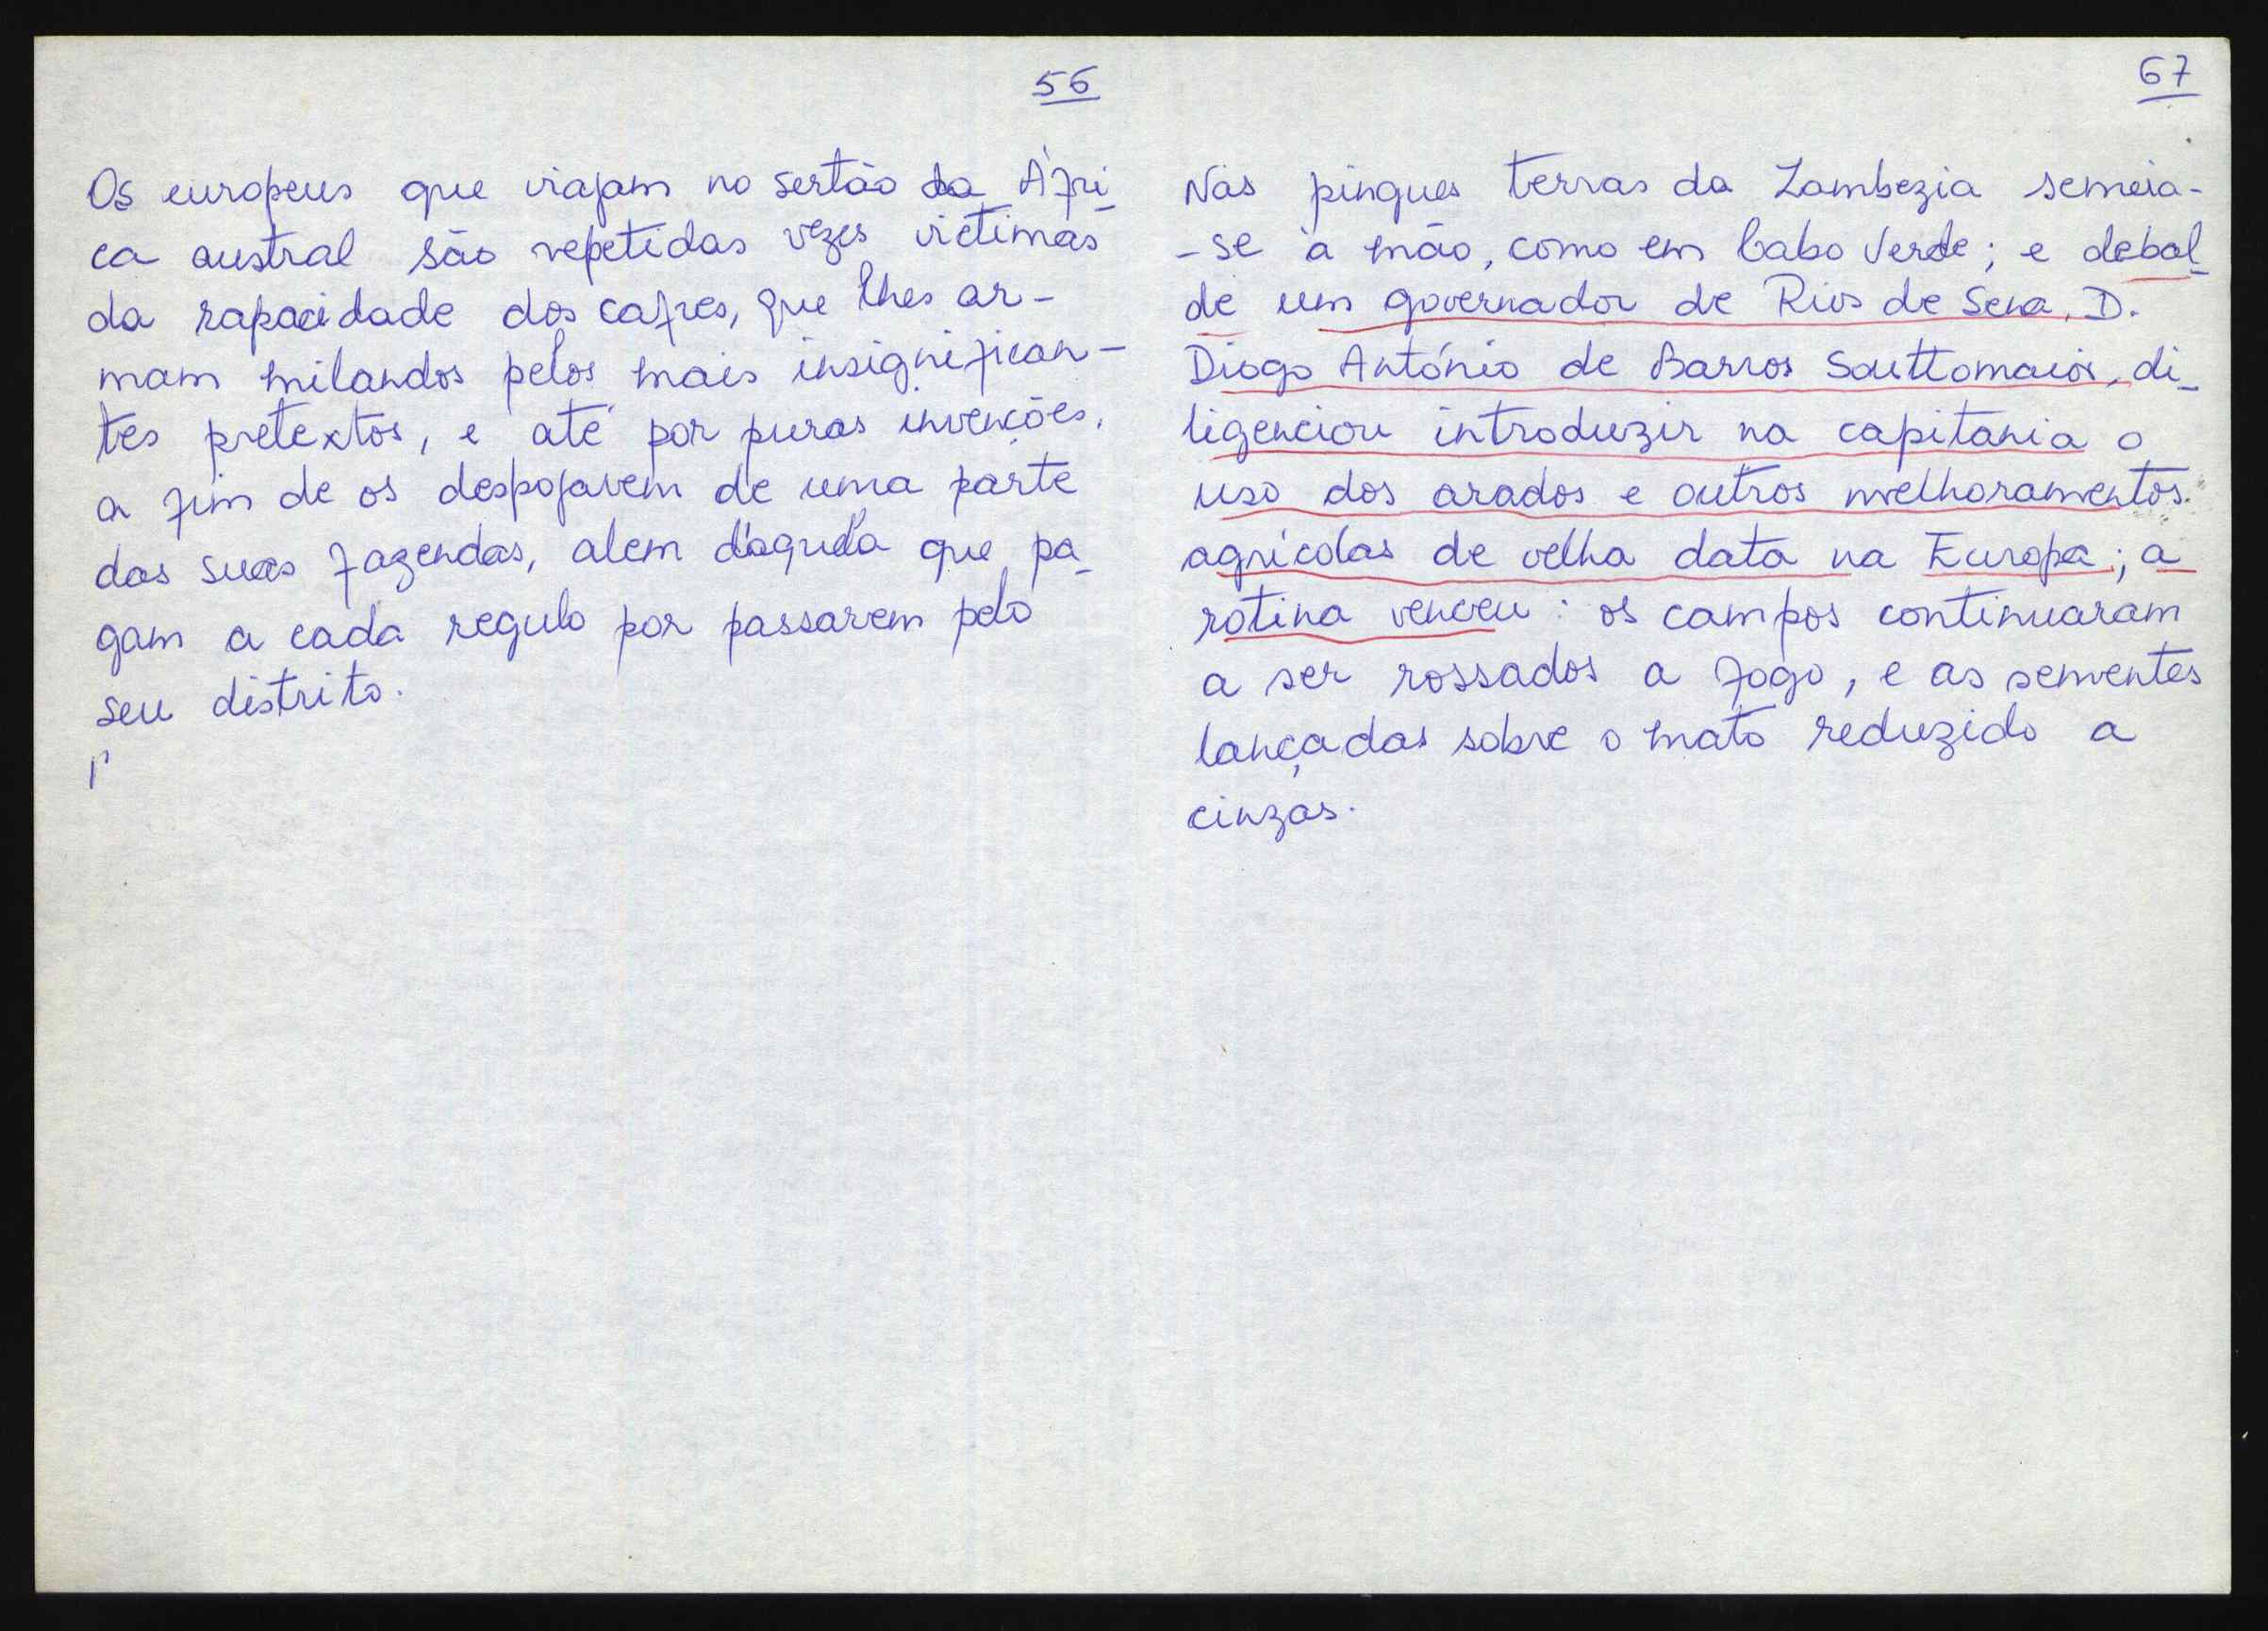 56
Os europeus que viajam no sertão da Áfri-
ca austral são repetidas vezes victimas
da rapacidade dos cafres, que lhes ar-
mam milandos pelos mais insignifican-
tes pretextos, e até por puras invenções,
a fim de os despojarem de uma parte
das suas fazendas, alem d'aquela que pa-
gam a cada regulo por passarem pelo
seu distrito.
67
Nas pingues terras da Zambezia semeia-
-se à mão, como em Cabo Verde; e debal-
de um governador de Rios de Sena, D.
Diogo António de Barros Souttomaior, di-
ligenciou introduzir na capitania o
uso dos arados e outros melhoramentos
agrícolas de velha data na Europa; a
rotina venceu: os campos continuaram
a ser rossados a fogo, e as sementes
lançadas sobre o mato reduzido a
cinzas.